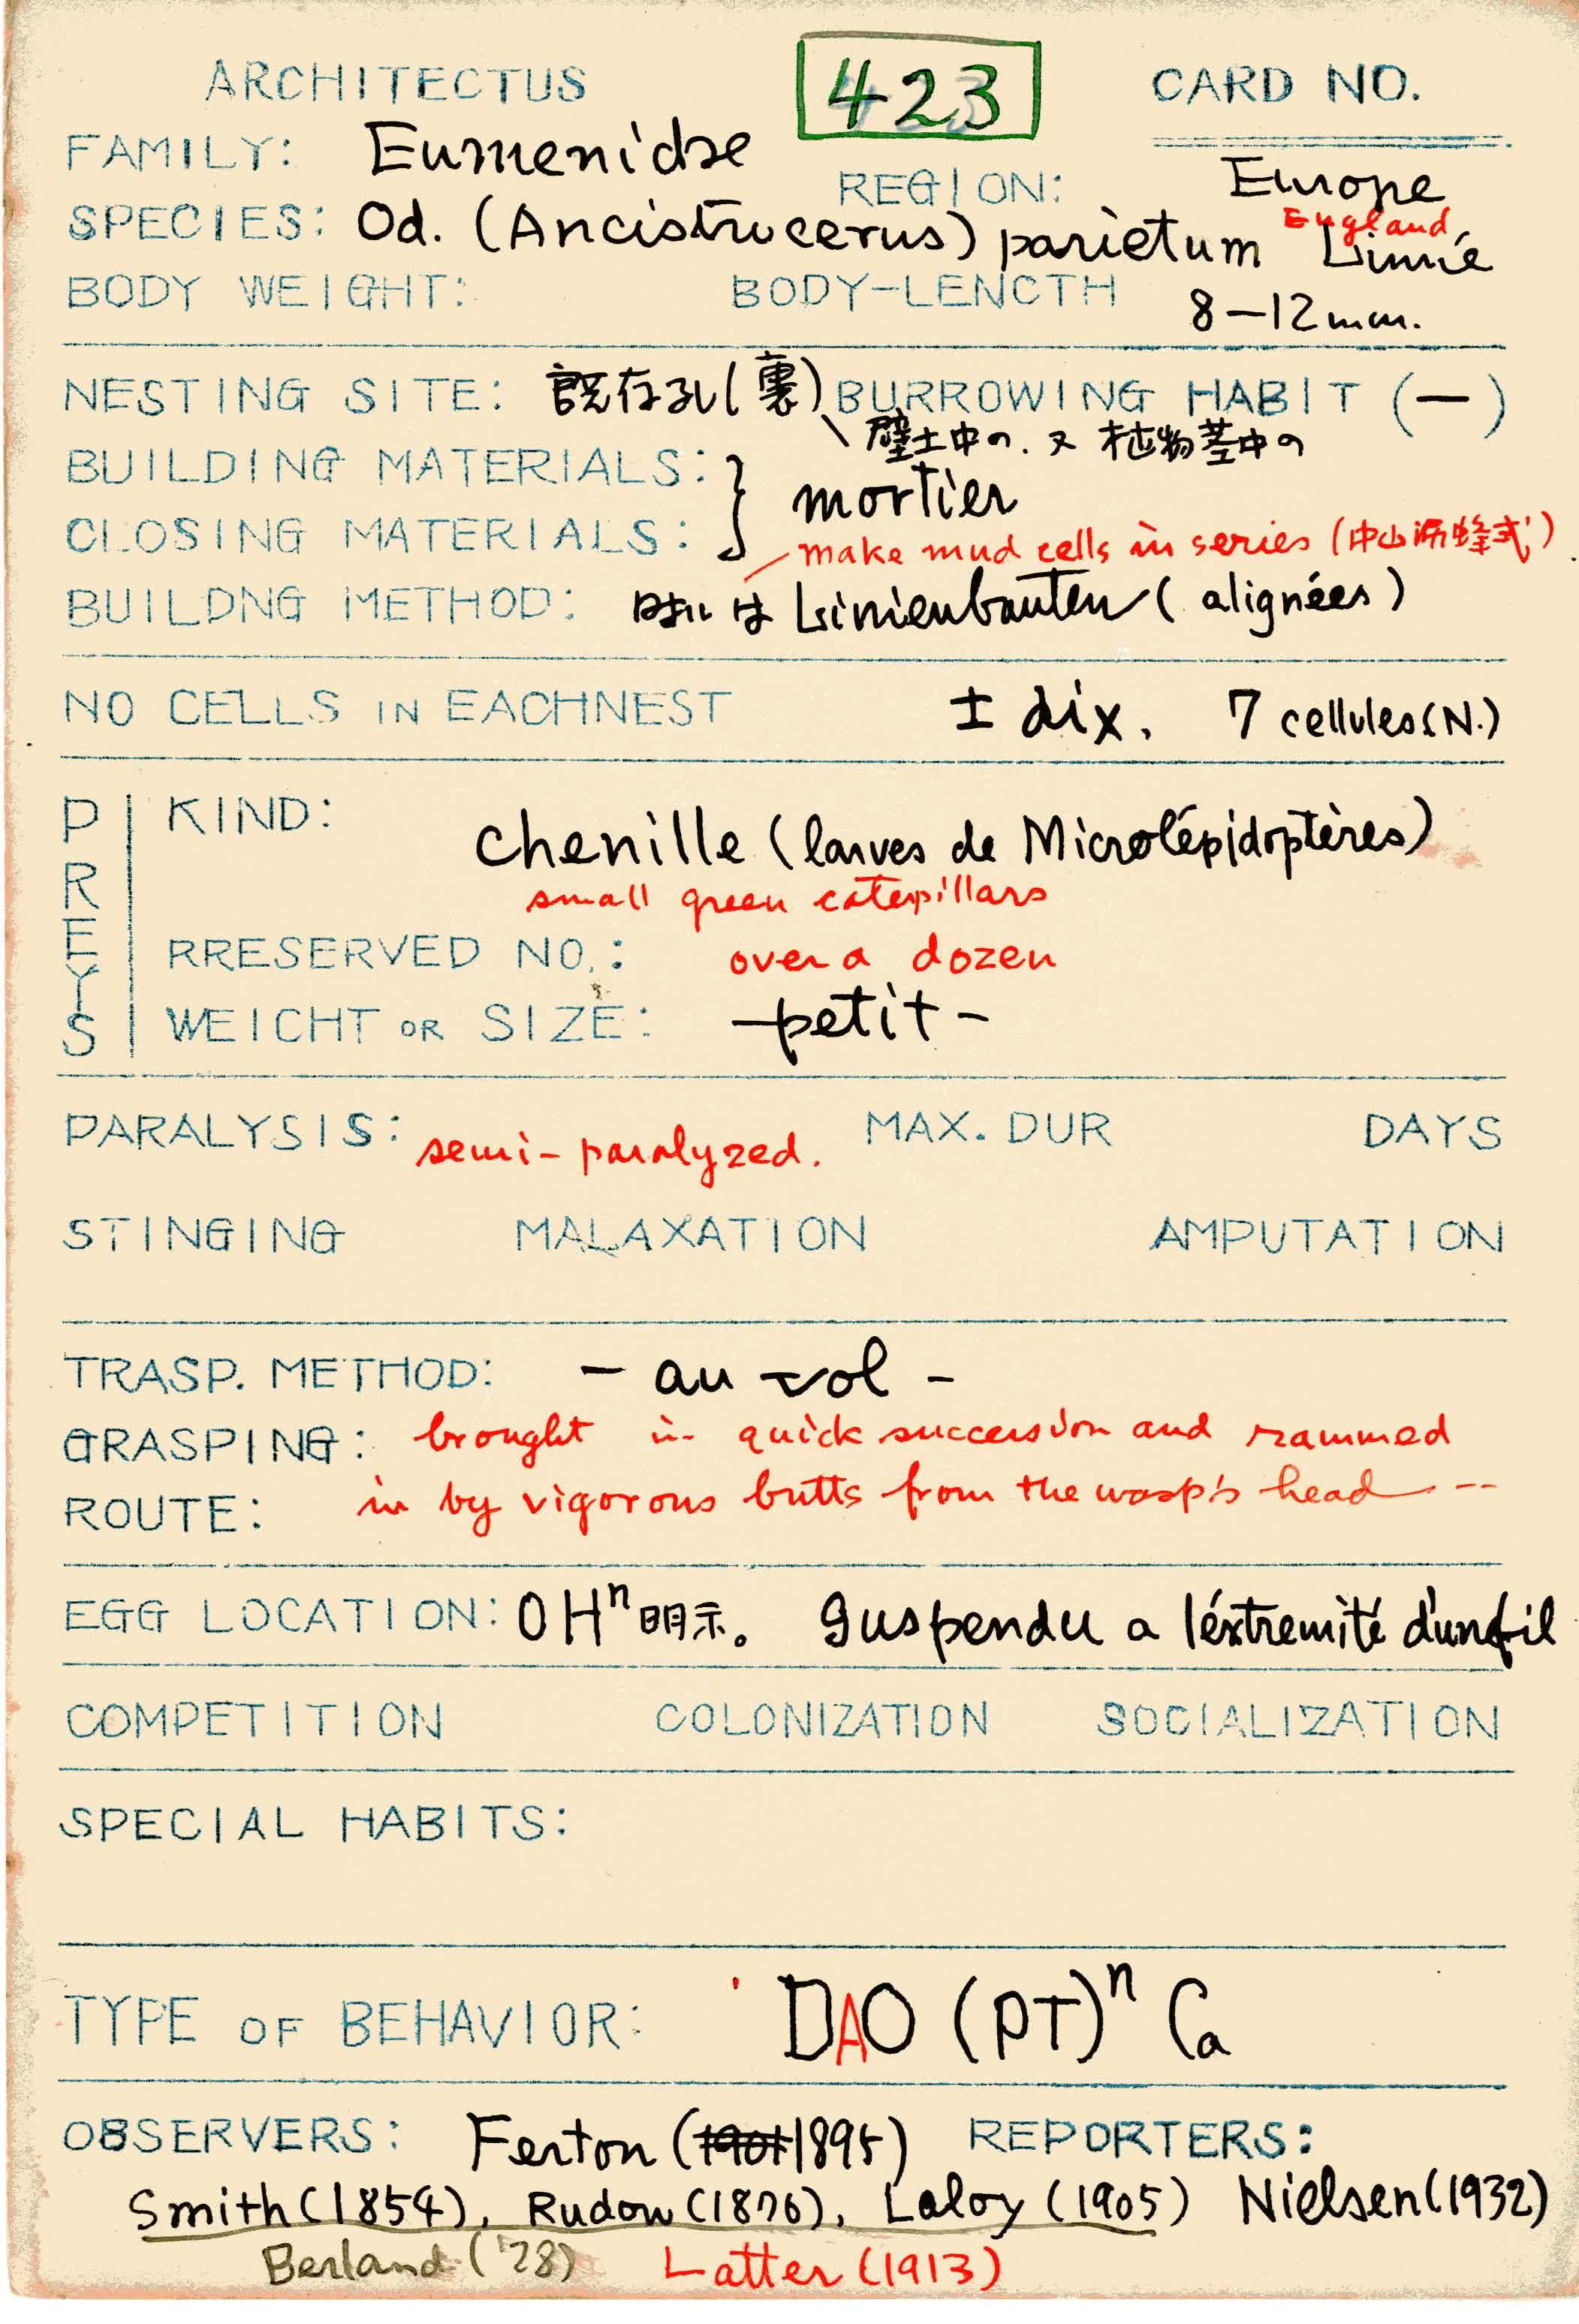 ARCHITECTUS 423 CARD NO.
FAMILY: Eumenidae
REGION: Europe
England
SPECIES: Od. (Ancistrocerus) parietum Linné
BODY WEIGHT: BODY-LENCTH 8-12mm.
NESTING SITE: 既存孔(裏) BURROWING HABIT (-)
壁土中の. 又 植物茎中の
BUILDING MATERIALS:
mortier
CLOSING MATERIALS:
make mud cells in series (中山 蜂式)
BUILDNG METHOD: 時には Linienbauten (alignées)
NO CELLS IN EACHNEST ± dix. 7 cellules (N.)
PREYS
KIND: chenille (larves de Microlépidoptères)
small green caterpillars
RRESERVED NO.: over a dozen
WEICHT OR SIZE: -petit-
PARALYSIS: semi-paralyzed. MAX. DUR DAYS
STINGING MALAXATION AMPUTATION
TRASP. METHOD: - au vol -
GRASPING: brought in quick succession and rammed
ROUTE: in by vigorous butts from the wasp's head --
EGG LOCATION: OHⁿ明示。 suspendu a l'éxtremité d'un fil
COMPETITION COLONIZATION SOCIALIZATION
SPECIAL HABITS:
TYPE OF BEHAVIOR: DAO (PT)ⁿ Ca
OBSERVERS: Ferton (1901 1895) REPORTERS:
Smith (1854), Rudow (1876), Laloy (1905) Nielsen (1932)
Berland ('28) Latter (1913)